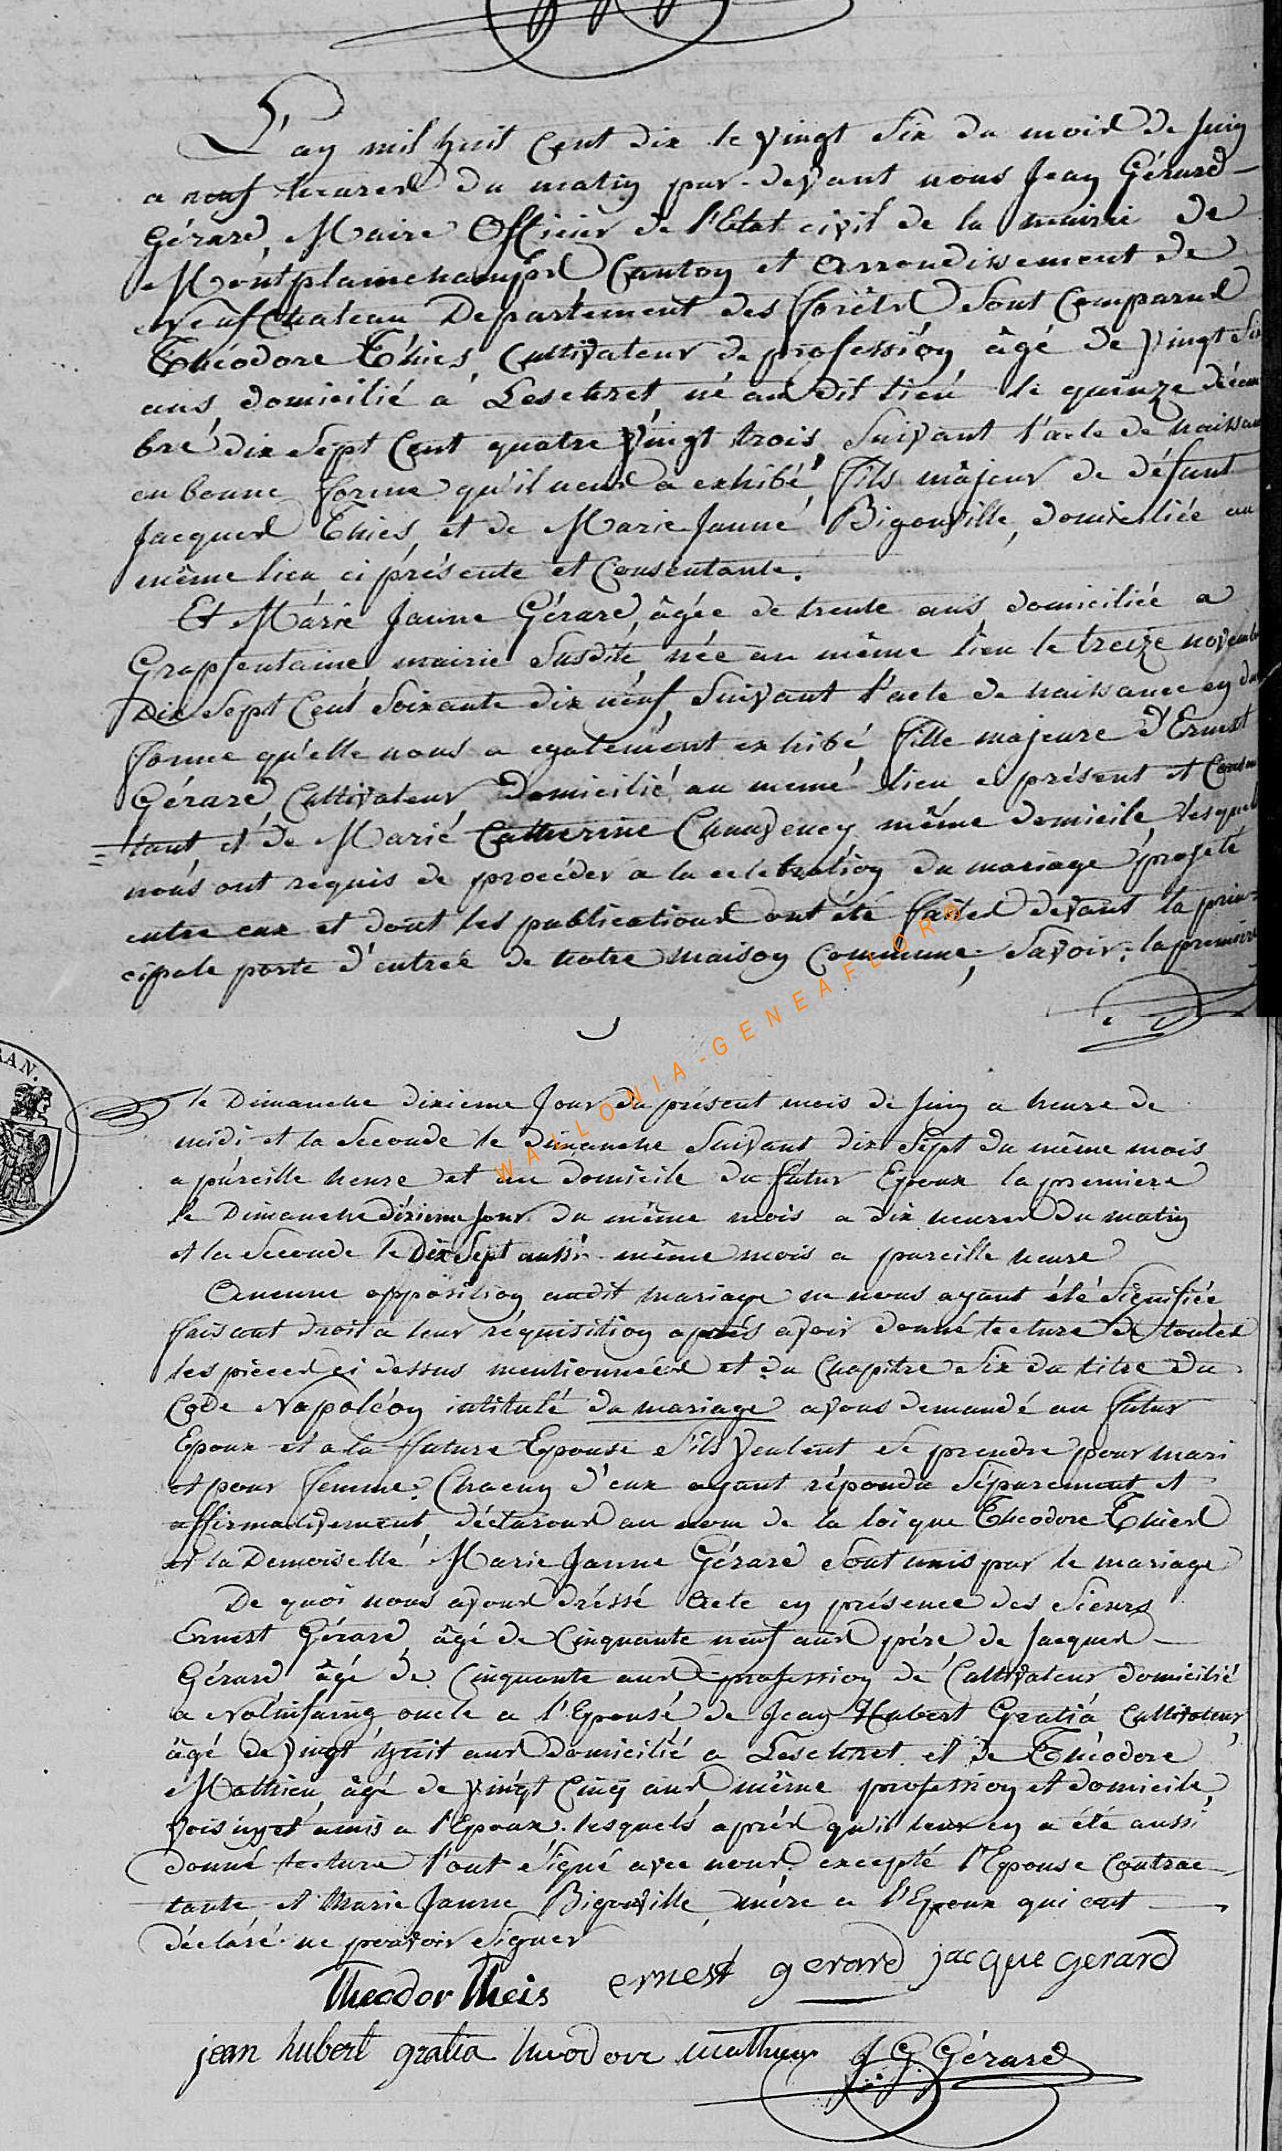 L'an mil huit Cent dix le vingt Six du mois de Juin
a neuf heures du matin par-devant nous Jean Gérard
Gérard, Maire Officier de l'Etat civil de la mairie de
Montplainchamps Canton et Arrondissement de
Neufchâteau Departement des forêts Sont Comparus
Théodore Thies, Cultivateur de profession, âgé de vingt Six
ans, domicilié à Leschret né au dit lieu le quinze décem
bre dix Sept Cent quatre vingt trois, Suivant l'acte de naissan
en bonne forme qu'il nous a exhibé, fils majeur de défunt
Jacques Thies, et de Marie Janne Bigonville, domiciliée au
même lieu ci présente et Consentante.
Et Marie Janne Gérard, âgée de trente ans, domiciliée a
Grapfontaine, mairie Susdite, née au même lieu le treize novemb
Dix Sept Cent Soixante dix neuf, Suivant l'acte de naissance en due
forme qu'elle nous a egalement exhibé, fille majeure d'Ernest
Gérard, Cultivateur, Domicilié au meme lieu ci présent et Consen
=tant et de Marie Catherine Chauvency même domicile, lesquels
nous ont requis de procéder a la celebration du mariage projeté
entre eux et dont les publications ont été faites devant la prin=
cipale porte d'entrée de notre maison Commune; Savoir; la premiere
RAN.
le Dimanche dixieme Jour du présent mois de Juin a heure de
midi et la Seconde le dimanche Suivant dix Sept du même mois
a pareille heure et au domicile du futur Epoux la premiere
le Dimanche dixieme Jour du même mois a dix heures du matin
et la Seconde le Dix Sept aussi même mois a pareille heure
Aucune opposition audit mariage ne nous ayant été Signifiée
faisant droit a leur réquisition après avoir donné lecture de toutes
les pieces ci dessus mentionnées et du Chapitre Six du titre du
Code Napoléon intitulé du mariage avons demandé au futur
Epoux et a la future Epouse s'ils veulent se prendre pour mari
et pour femme. Chacun d'eux ayant répondu Séparement et
affirmativement, déclarons au nom de la loi que Theodore Thies
et la Demoiselle Marie Janne Gérard sont unis par le mariage
De quoi nous avons dréssé Acte en présence des Sieurs
Ernest Gérard, âgé de Cinquante neuf ans père de Jacques
Gérard âgé de Cinquante ans profession de Cultivateur domicilié
a Nolinfaing oncle a l'Epouse de Jean Hubert Gratia Cultivateur,
âgé de vingt huit ans Domicilié a Leschret et de Théodore
Mathieu âgé de vingt Cinq ans, même profession et domicile,
voisin et amis a l'Epoux. lesquels après qu'il leur en a été aussi
donné lecture l'ont signé avec nous excepté l'Epouse Contrac
tante et Marie Janne Bigonville, mère a l'Epoux qui ont
déclaré ne pouvoir Signer
Theodor Theis ernest gerard jacque gerard
jean hubert gratia theodore mathieu J G Gérard
WALLONIA-GENEAFLOR®